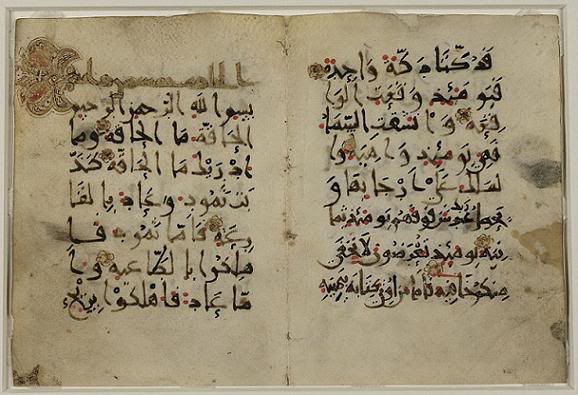 فدكتا دكة واحدة
فيومئذ وقعت الوا
قعة وانشقت السما
فهي يومئذ واهية وا
لملك على ارجائها و
يحمل عرش ربك فوقهم يومئذ ثما
نية يومئذ تعرضون لا تخفى
منكم خافية فاما من اوتي كتابه بيمينه
بسم الله الرحمن الرحيم
الحاقة ما الحاقة وما
ادريك ما الحاقة كذ
بت ثمود وعاد بالقا
رعة فاما ثمود فا
هلكوا بالطاغية وا
ما عاد فاهلكوا بريح